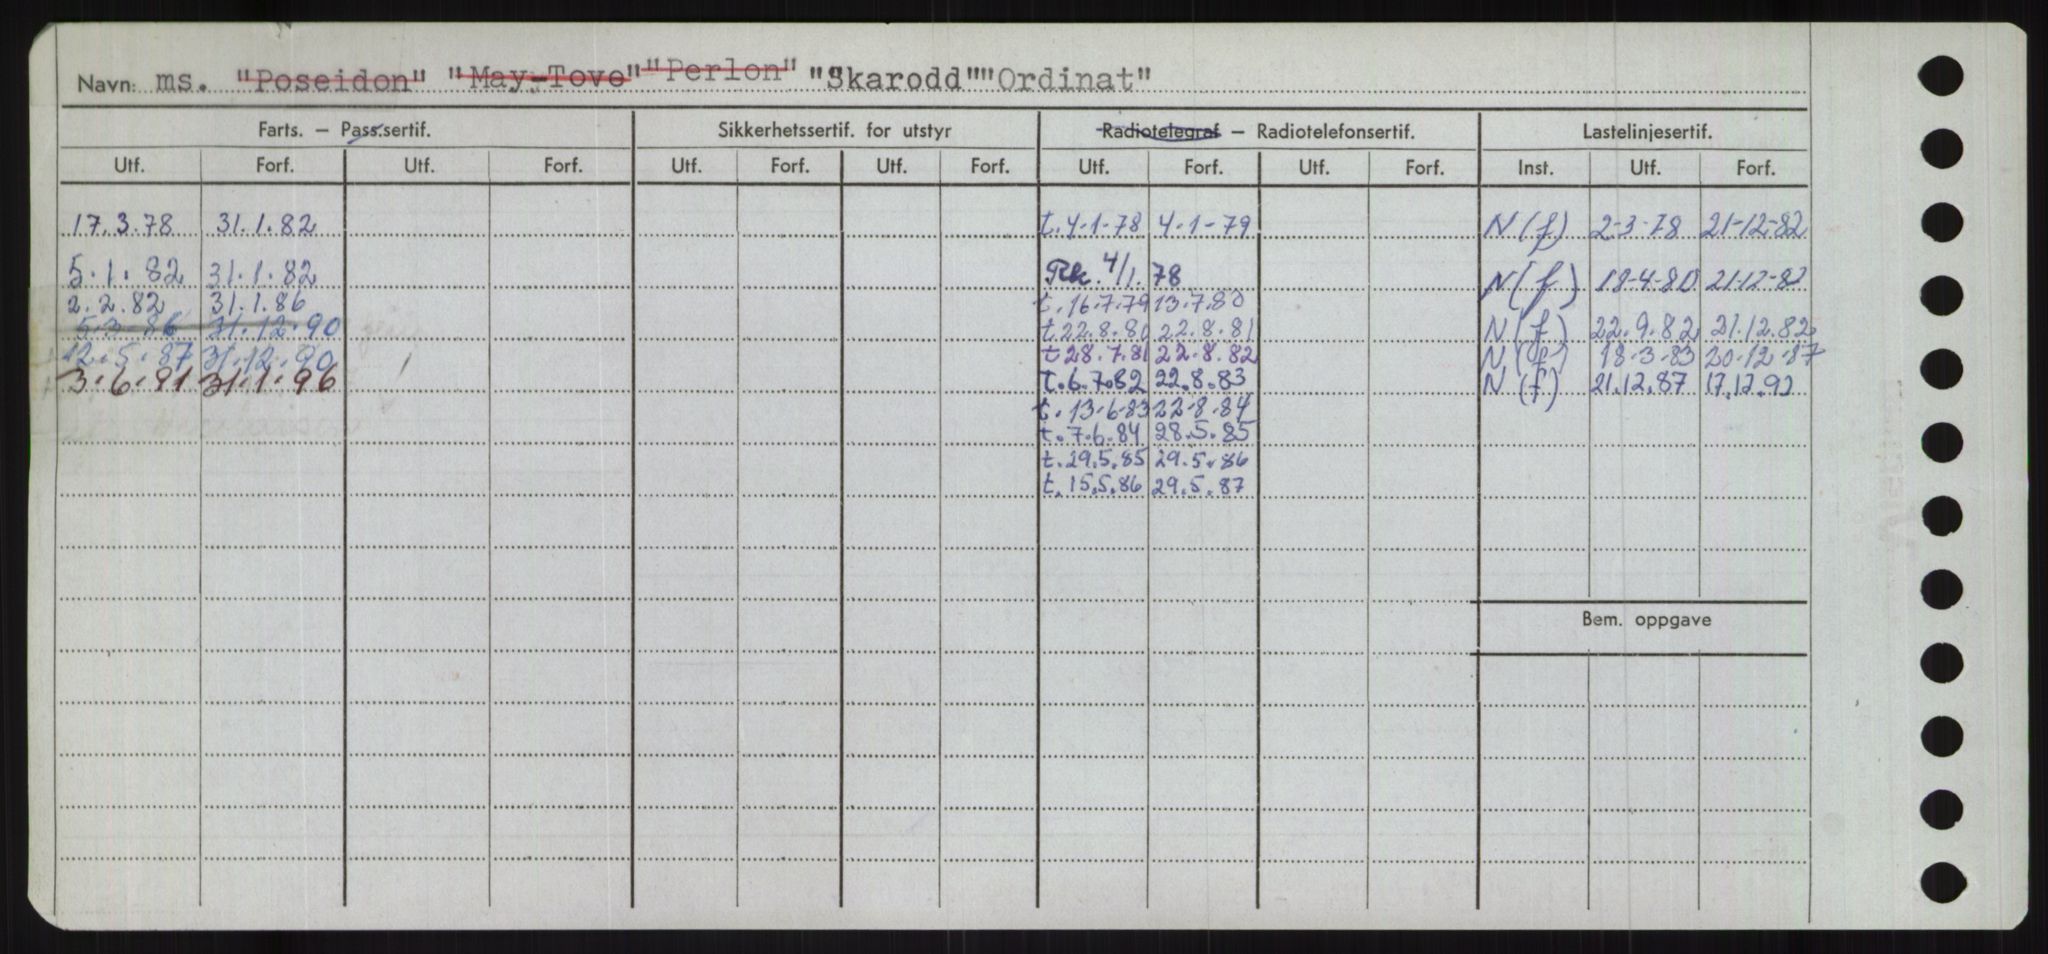 Navn: ms. "Poseidon" "May-Tove" "Perlon" "Skarodd" "Ordinat"
Farts. – Pass.sertif. Sikkerhetssertif. for utstyr Radiotelegraf – Radiotelefonsertif. Lastelinjesertif.
Utf. Forf. Utf. Forf. Utf. Forf. Utf. Forf. Utf. Forf. Utf. Forf. Inst. Utf. Forf.
17.3.78 31.1.82 t.4-1-78 4-1-79 N(f) 2-3-78 21-12-82
5.1.82 31.1.82 Rk. 4/1.78 N(f) 18-4-80 21-12-82
2.2.82 31.1.86 t.16.7.79 13.7.80
5.3-86 31.12.90 t.22.8.80 22.8.81 N(f) 22.9.82 21.12.82
12.5.87 31.12.90 t 28.7.81 22.8.82 N(f) 18-3-83 20-12-87
3.6.91 31.1.96 t.6.7.82 22.8.83 N(f) 21.12.87 17.12.92
t. 13-6-83 22-8-84
t.7.6.84 28.5.85
t.29.5.85 29.5.86
t.15.5.86 29.5.87
Bem. oppgave